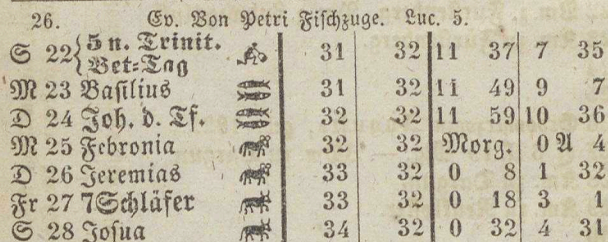 26. Ev. Von Petri Fischzuge. Luc. 5.
S 22 { 5 n. Trinit. 31 32 11 37 7 35
Bet=Tag
M 23 Basilius 31 32 11 49 9 7
D 24 Joh. d. Tf. 32 32 11 59 10 36
M 25 Febronia 32 32 Morg. 0 A 4
D 26 Jeremias 33 32 0 8 1 32
Fr 27 7Schläfer 33 32 0 18 3 1
S 28 Josua 34 32 0 32 4 31